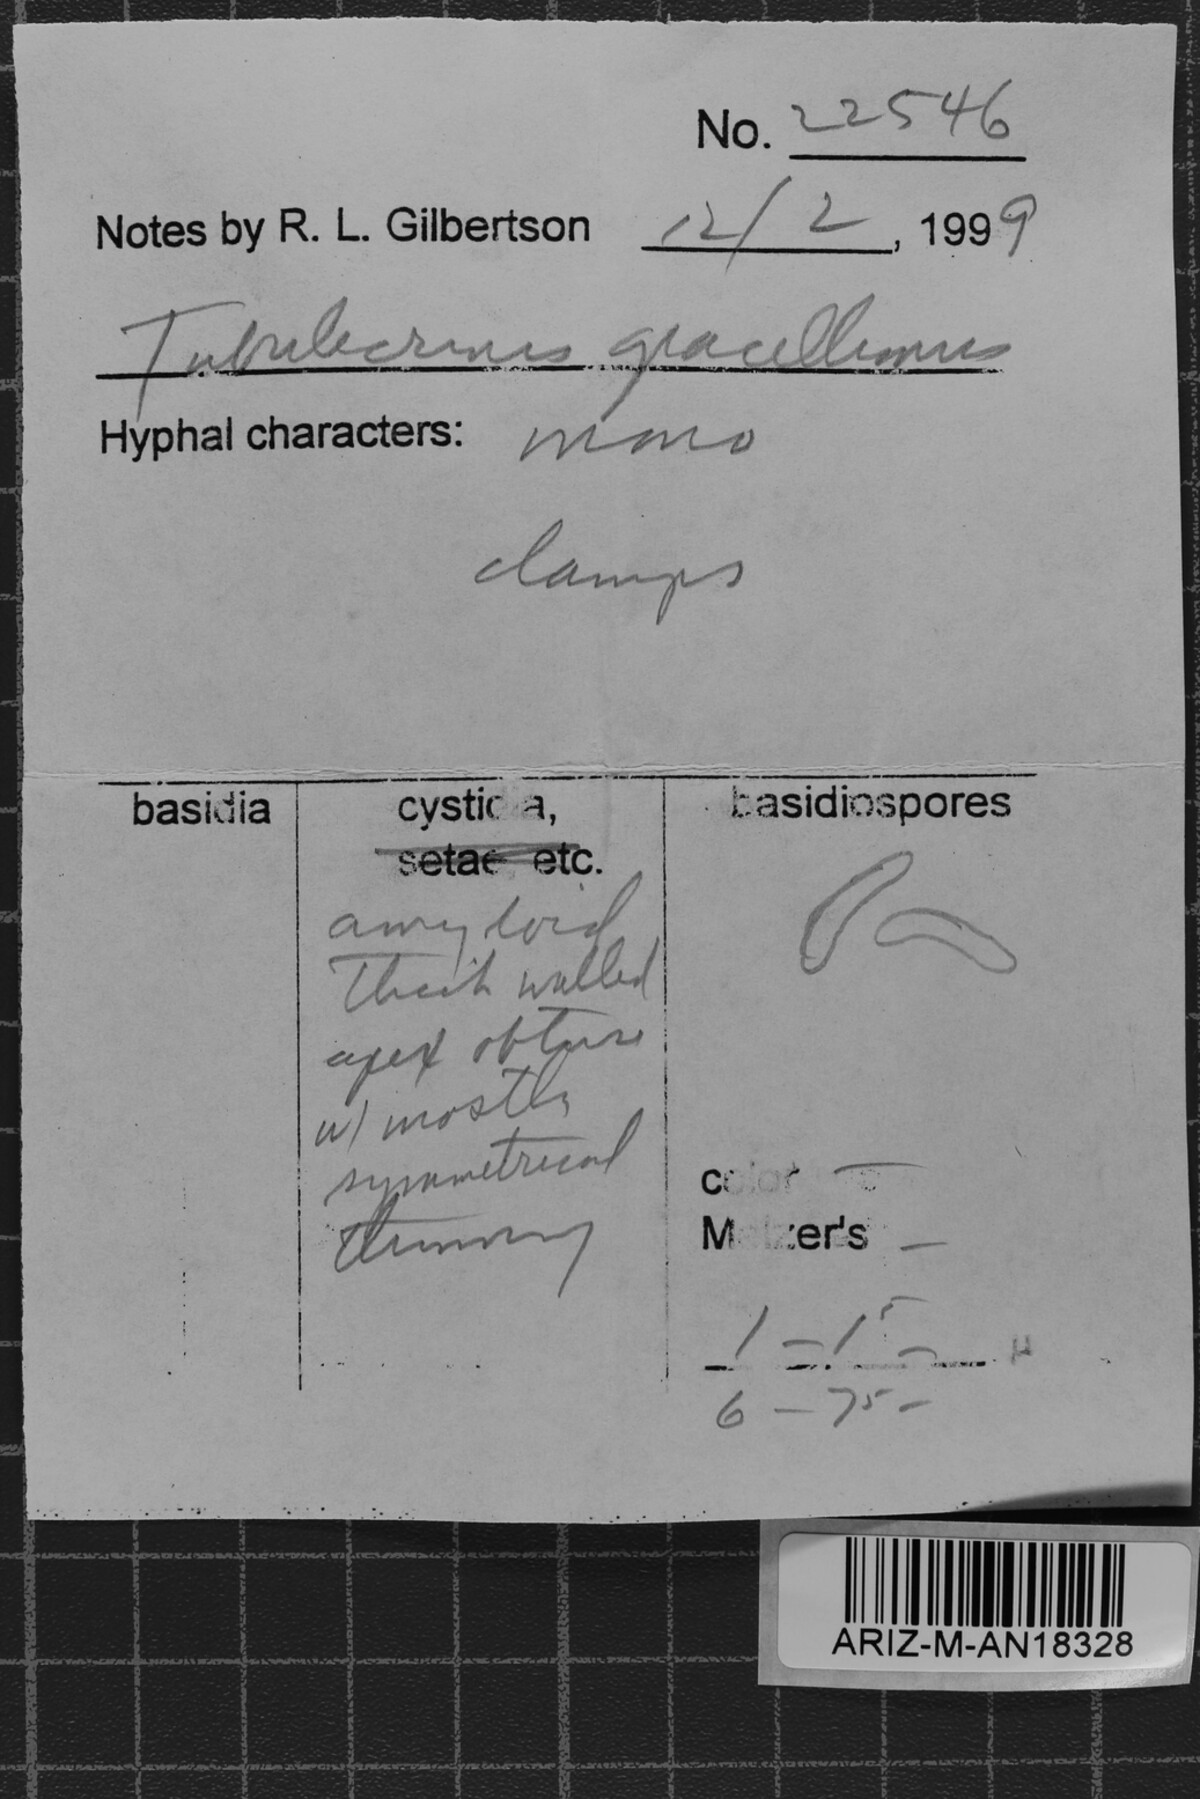 No. 22546
Notes by R. L. Gilbertson 12/2, 1999
Tubulicrinis gracillimus
Hyphal characters: mono
clamps
basidia
cystidia,
setae etc.
amyloid
thick walled
apex obtuse
w/ mostly
symmetrical
thinning
basidiospores
color —
Melzer's —
1 – 1⁵ –
μ
6 – 7⁵ –
ARIZ-M-AN18328